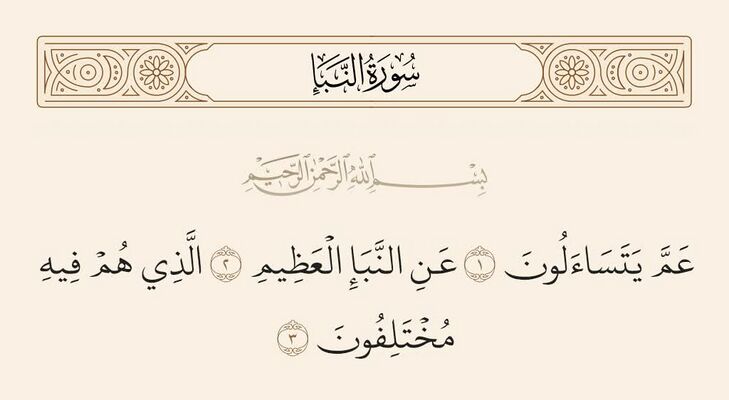 سُورَةُ النَّبَإِ
بِسْمِ اللَّهِ الرَّحْمَٰنِ الرَّحِيمِ
عَمَّ يَتَسَاءَلُونَ ١ عَنِ النَّبَإِ الْعَظِيمِ ٢ الَّذِي هُمْ فِيهِ
مُخْتَلِفُونَ ٣